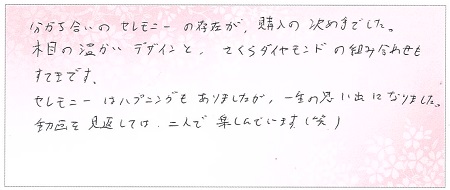 分かち合いの セレモニーの存在が、購入の決め手でした。
木目の温かいデザインと、さくらダイヤモンドの組み合わせも
すてきです。
セレモニーはハプニングもありましたが、一生の思い出になりました。
動画を見返しては、二人で楽しんでいます(笑)